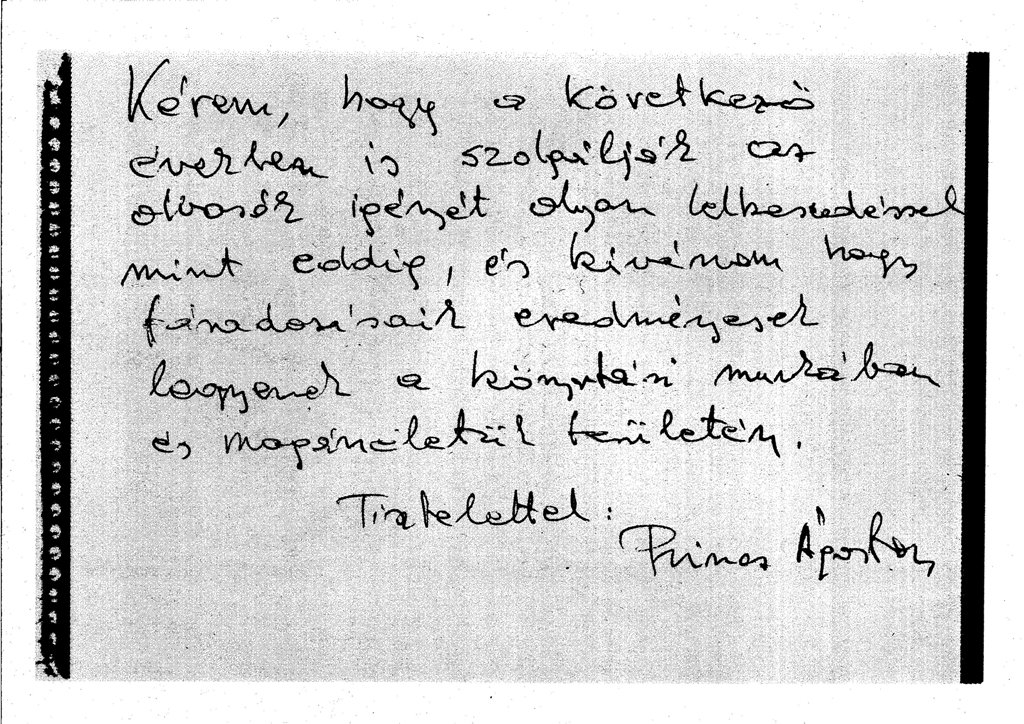 Kérem, hogy a következő
években is szolgálják az
olvasók igényét olyan lelkesedéssel
mint eddig, és kívánom hogy
fáradozásaik eredményesek
legyenek a könyvtári munkában
és magánéletük területén.
Tisztelettel:
Prinos Áposton